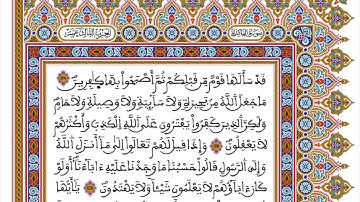 سورة المائدة
الحزب الثالث عشر
قَدْ سَأَلَهَا قَوْمٌ مِّن قَبْلِكُمْ ثُمَّ أَصْبَحُوا۟ بِهَا كَٰفِرِينَ
مَا جَعَلَ ٱللَّهُ مِنۢ بَحِيرَةٍ وَلَا سَآئِبَةٍ وَلَا وَصِيلَةٍ وَلَا حَامٍ
وَلَٰكِنَّ ٱلَّذِينَ كَفَرُوا۟ يَفْتَرُونَ عَلَى ٱللَّهِ ٱلْكَذِبَ وَأَكْثَرُهُمْ
لَا يَعْقِلُونَ وَإِذَا قِيلَ لَهُمْ تَعَالَوْا۟ إِلَىٰ مَآ أَنزَلَ ٱللَّهُ
وَإِلَى ٱلرَّسُولِ قَالُوا۟ حَسْبُنَا مَا وَجَدْنَا عَلَيْهِ ءَابَآءَنَآ أَوَلَوْ
كَانَ ءَابَآؤُهُمْ لَا يَعْلَمُونَ شَيْـًٔا وَلَا يَهْتَدُونَ يَٰٓأَيُّهَا